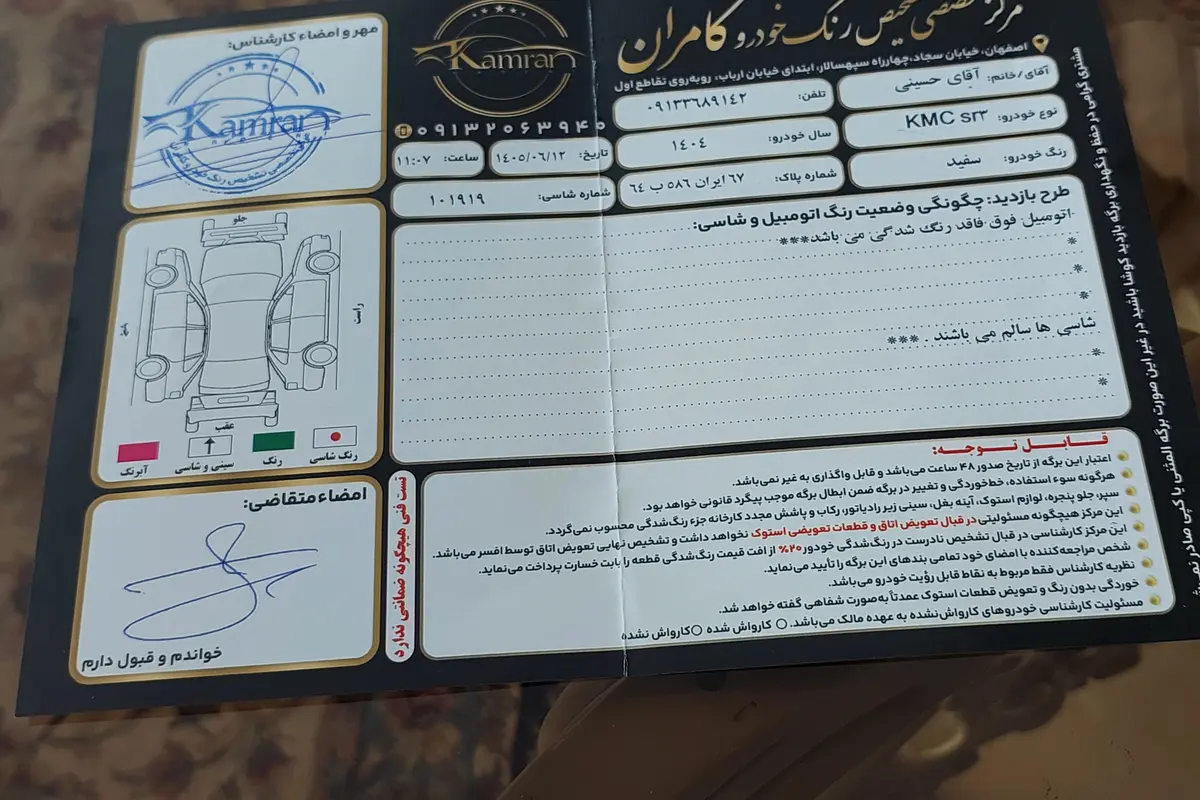 مرکز تخصصی تشخیص رنگ خودرو کامران
اصفهان، خیابان سجاد، چهارراه سپهسالار، ابتدای خیابان ارباب، روبه‌روی تقاطع اول
Kamran
۰۹۱۳۲۰۶۳۹۴۰
آقای/خانم: آقای حسینی
تلفن: ۰۹۱۳۳۶۸۹۱۴۲
نوع خودرو: KMC sr۳
سال خودرو: ۱۴۰۴
تاریخ: ۱۴۰۵/۰۶/۱۲
ساعت: ۱۱:۰۷
رنگ خودرو: سفید
شماره پلاک: ۶۷ ایران ۵۸۶ ب ۶۴
شماره شاسی: ۱۰۱۹۱۹
طرح بازدید: چگونگی وضعیت رنگ اتومبیل و شاسی:
اتومبیل فوق فاقد رنگ شدگی می باشد***
*
*
*
شاسی ها سالم می باشند . ***
*
*
قابل توجه:
اعتبار این برگه از تاریخ صدور ۴۸ ساعت می‌باشد و قابل واگذاری به غیر نمی‌باشد.
هرگونه سوء استفاده، خط‌خوردگی و تغییر در برگه ضمن ابطال برگه موجب پیگرد قانونی خواهد بود.
سپر، جلو پنجره، لوازم استوک، آینه بغل، سینی زیر رادیاتور، رکاب و پاشش مجدد کارخانه جزء رنگ‌شدگی محسوب نمی‌گردد.
این مرکز هیچگونه مسئولیتی در قبال تعویض اتاق و قطعات تعویضی استوک نخواهد داشت و تشخیص نهایی تعویض اتاق توسط افسر می‌باشد.
این مرکز کارشناسی در قبال تشخیص نادرست در رنگ‌شدگی خودرو ۲۰% از افت قیمت رنگ‌شدگی قطعه را بابت خسارت پرداخت می‌نماید.
شخص مراجعه‌کننده با امضای خود تمامی بندهای این برگه را تأیید می‌نماید.
نظریه کارشناس فقط مربوط به نقاط قابل رؤیت خودرو می‌باشد.
خوردگی بدون رنگ و تعویض قطعات استوک عمدتاً به‌صورت شفاهی گفته خواهد شد.
مسئولیت کارشناسی خودروهای کارواش‌نشده به عهده مالک می‌باشد. کارواش شده کارواش نشده
تست فنی هیچگونه ضمانتی ندارد
مهر و امضاء کارشناس:
Kamran
جلو
راست
عقب
رنگ شاسی
رنگ
سینی و شاسی
آبرنگ
امضاء متقاضی:
خواندم و قبول دارم
مشتری گرامی در حفظ و نگهداری برگه بازدید کوشا باشید در غیر این صورت برگه المثنی با کپی صادر